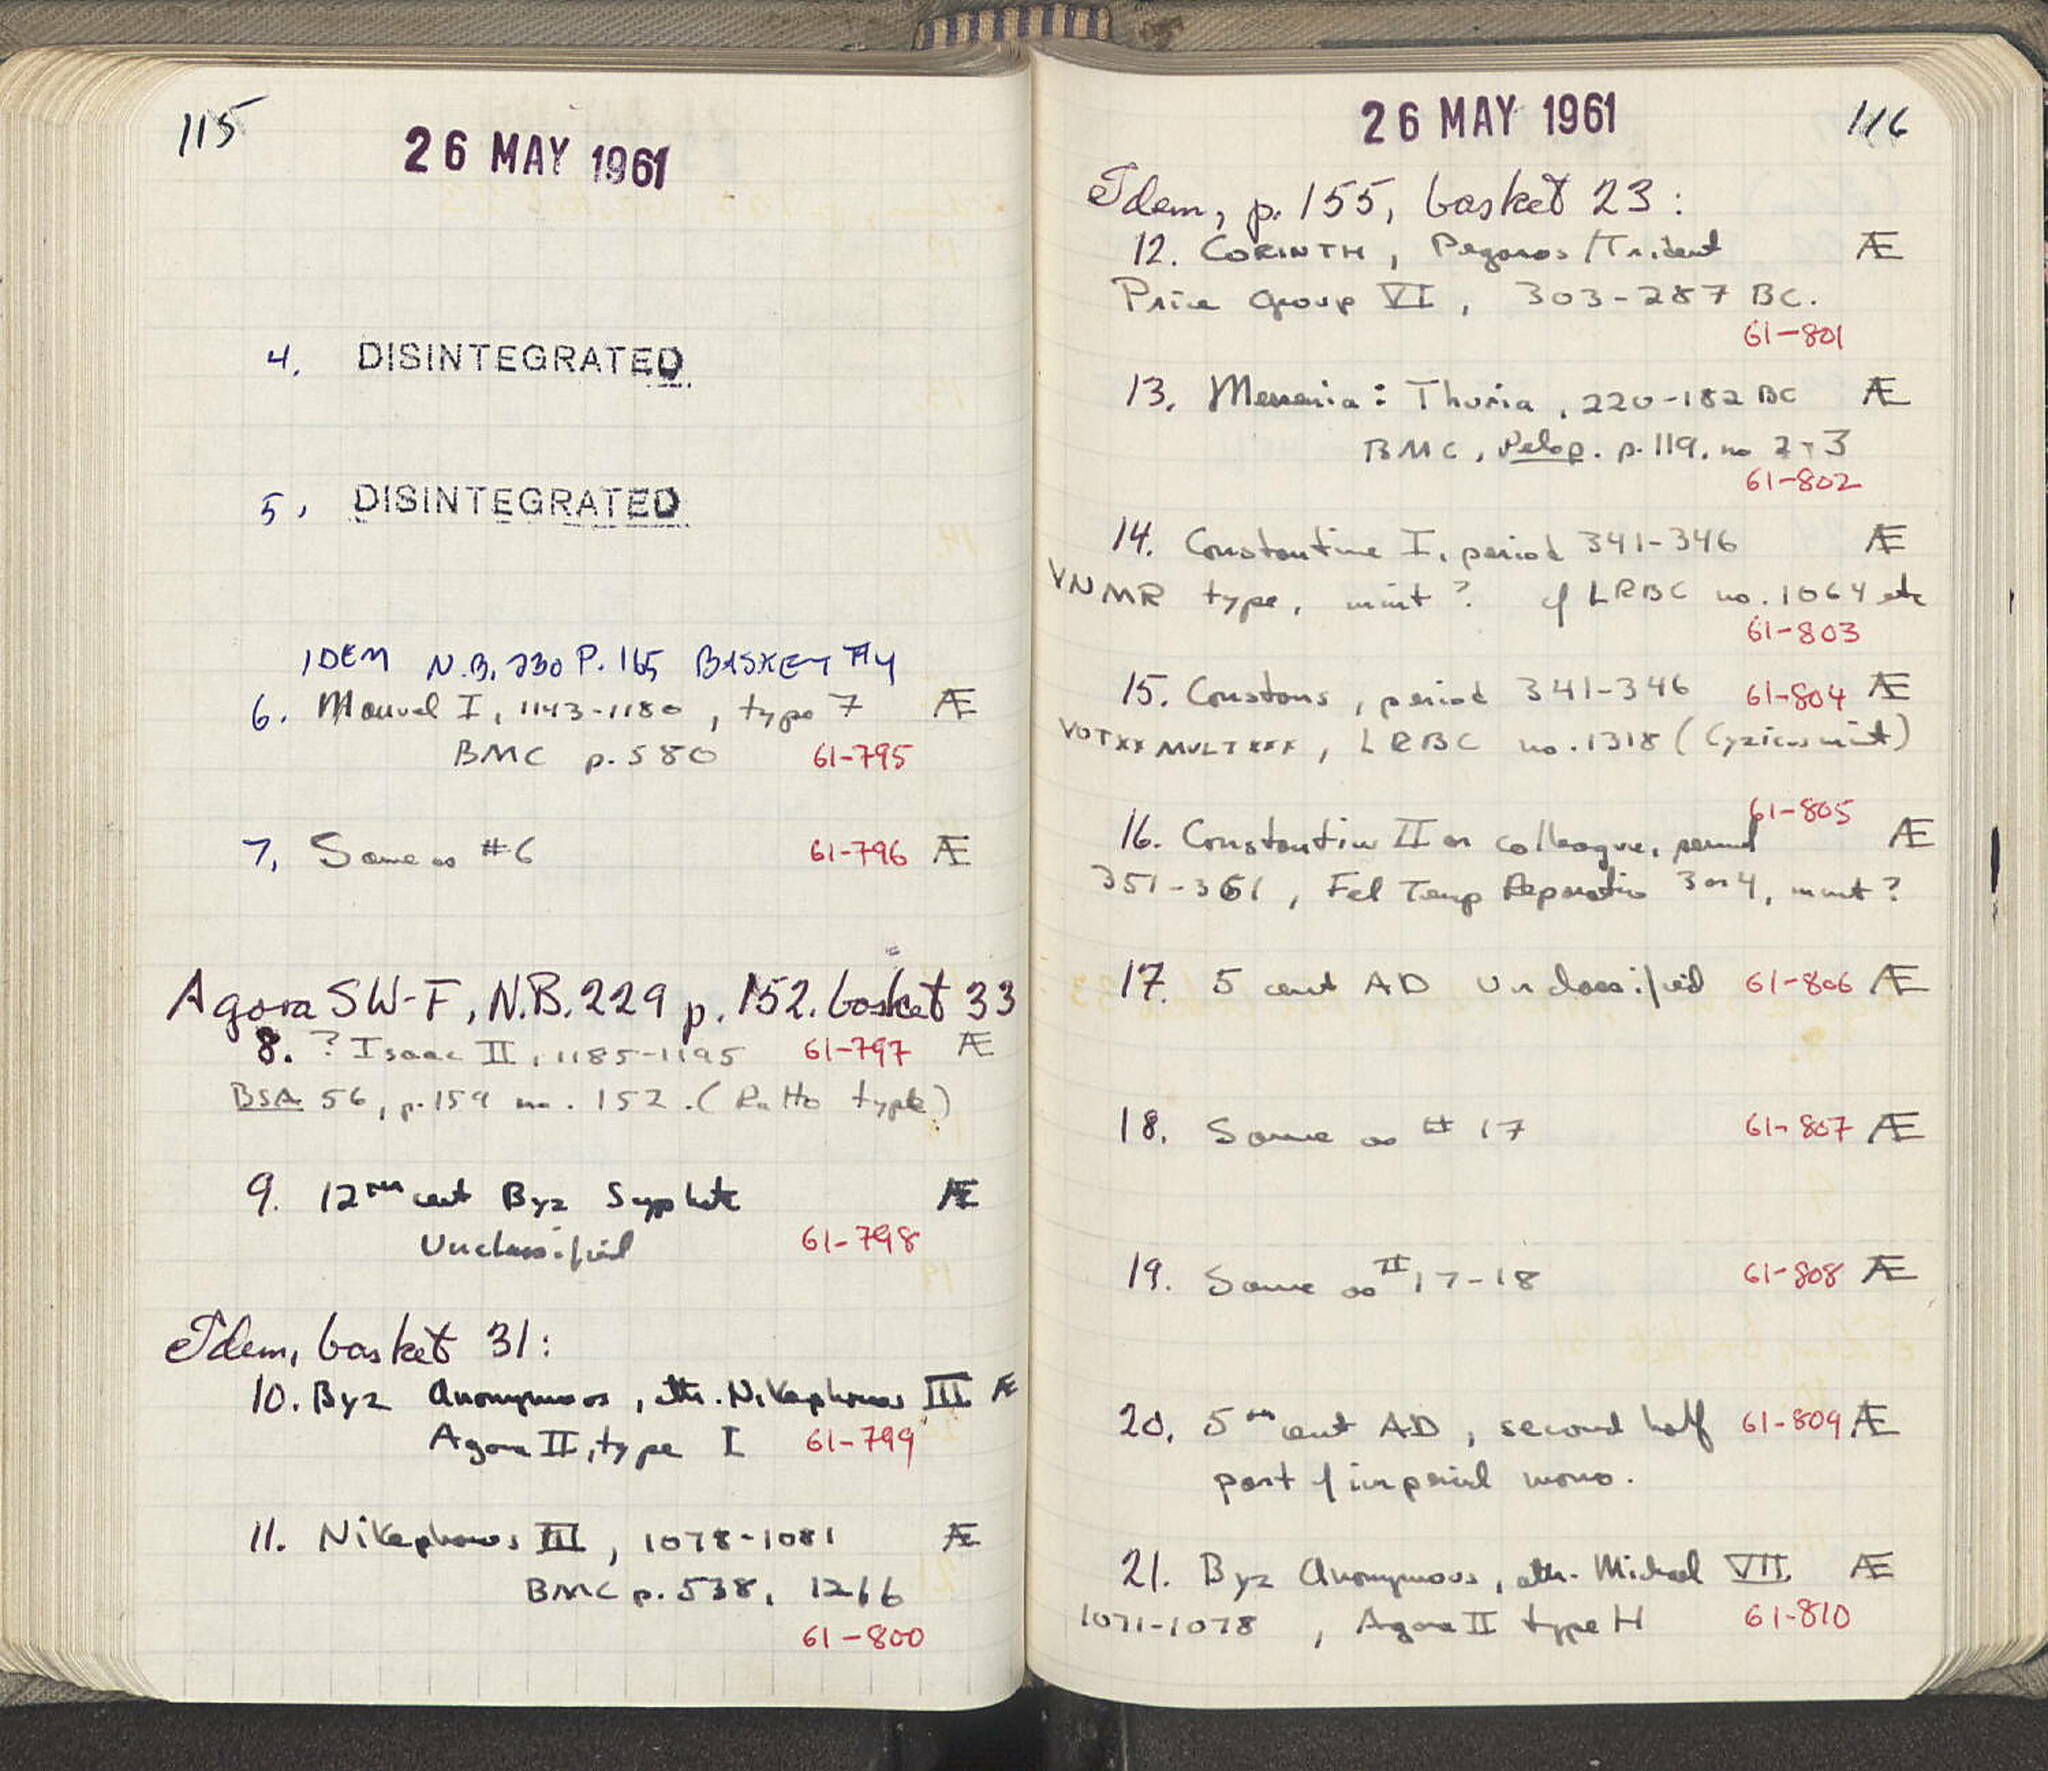 115
26 MAY 1961
4. DISINTEGRATED
5. DISINTEGRATED
IDEM N.B. 230 P. 165 BASKET #4
6. Manuel I, 1143-1180, type 7 Æ
BMC p. 580 61-795
7. Same as #6 61-796 Æ
Agora SW-F, N.B. 229 p. 152. basket 33
8. ? Isaac II, 1185-1195 61-797 Æ
BSA 56, p. 159 no. 152. (Ratto type)
9. 12th cent Byz Æ
Unclassified 61-798
Idem, basket 31:
10. Byz Anonymous, attr. Nikephoros III Æ
Agora II, type I 61-799
11. Nikephoros III, 1078-1081 Æ
BMC p. 538, 1266
61-800
116
26 MAY 1961
Idem, p. 155, basket 23:
12. CORINTH, Pegasos/Trident Æ
Price Group VI, 303-287 BC.
61-801
13. Messenia: Thuria, 220-182 BC Æ
BMC, Pelop. p. 119, no 2+3
61-802
14. Constantine I, period 341-346 Æ
VNMR type, mint? cf LRBC no. 1064 etc
61-803
15. Constans, period 341-346 61-804 Æ
VOTXX MVLTXXX, LRBC no. 1318 (Cyzicus mint)
61-805
16. Constantius II or colleague, period Æ
351-361, Fel Temp Reparatio 3 or 4, mint?
17. 5 cent AD Unclassified 61-806 Æ
18. Same as # 17 61-807 Æ
19. Same as # 17-18 61-808 Æ
20. 5th cent AD, second half 61-809 Æ
part of imperial mono.
21. Byz Anonymous, attr. Michael VII Æ
1071-1078, Agora II type H 61-810